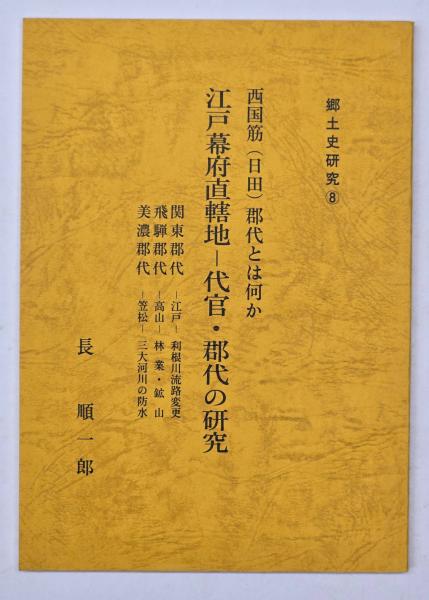 郷土史研究⑧
西国筋（日田）郡代とは何か
江戸幕府直轄地－代官・郡代の研究
関東郡代－江戸－利根川流路変更
飛騨郡代－高山－林業・鉱山
美濃郡代－笠松－三大河川の防水
長順一郎